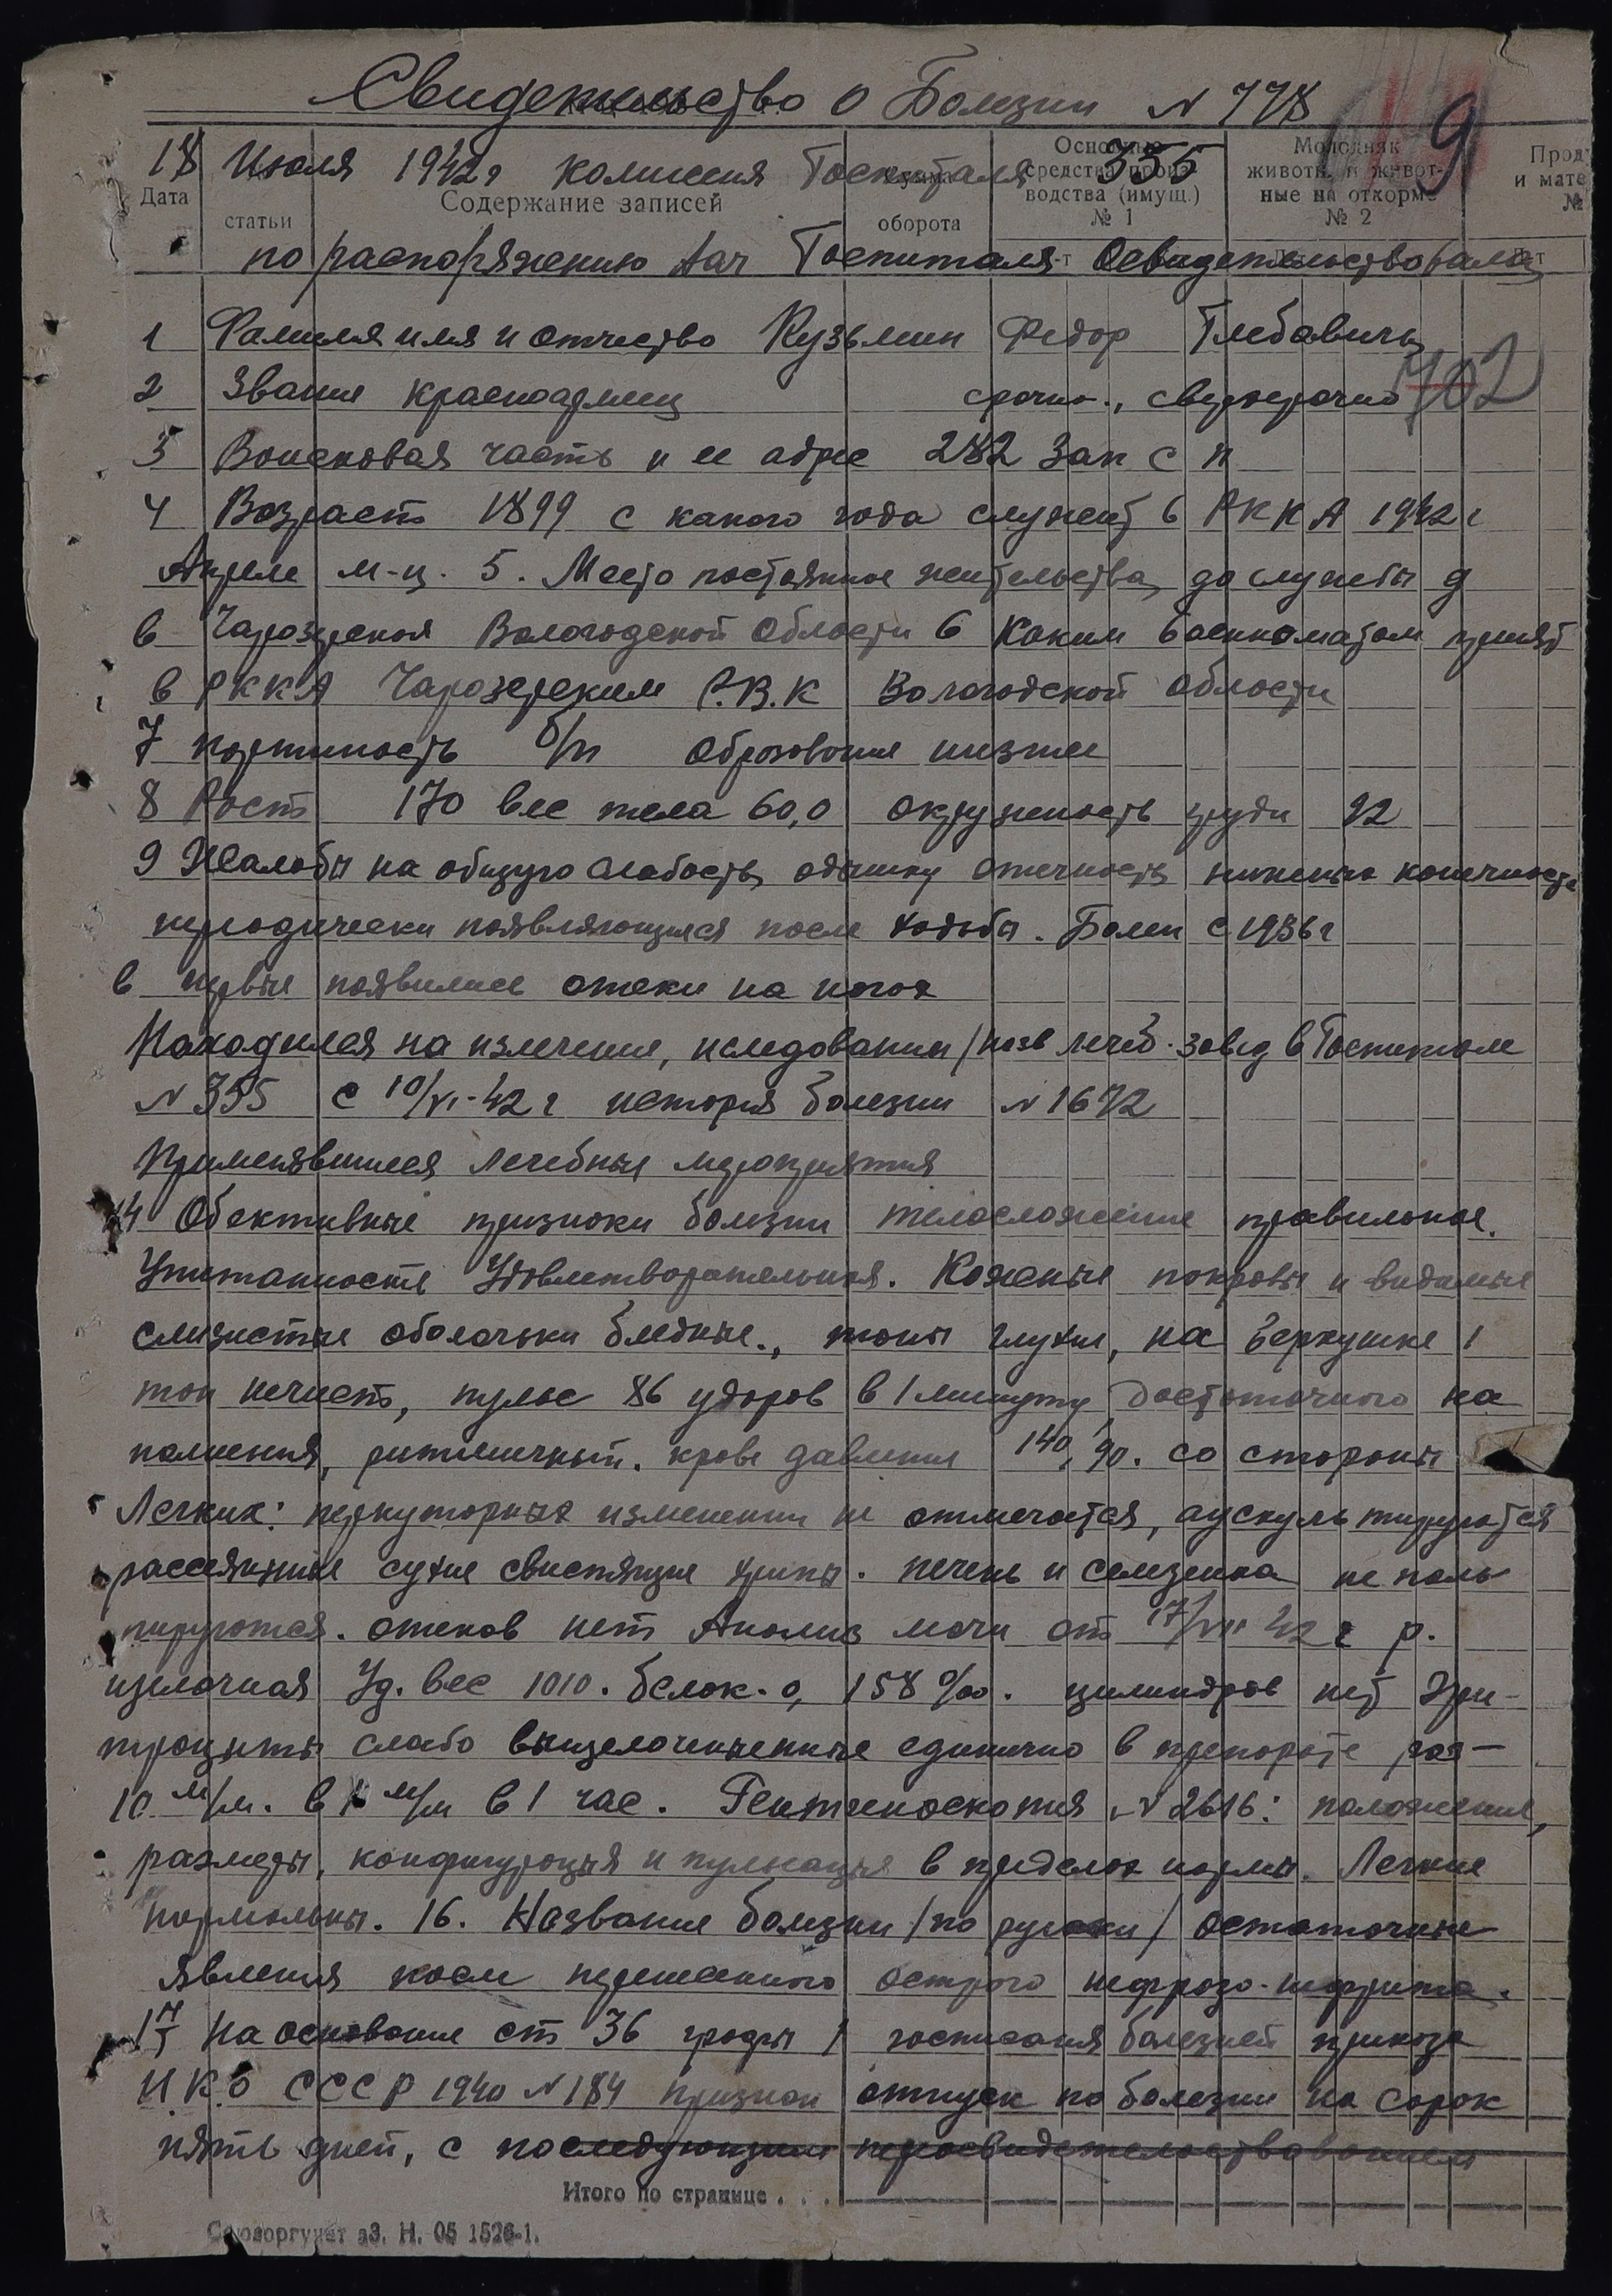 Свидетельство о Болезни № 778
19
18 Июля 1942г комиссия Госпиталя 355
Дата
статьи
Содержание записей
Сумма
оборота
Основные
средства произ-
водства (имущ.)
№ 1
Молодняк
животн. и живот-
ные на откорме
№ 2
Прод
и мате
№
по распоряжению Нач Госпиталя Освидетельствовала
1 Фамилия имя и отчество Кузьмин Федор Глебавичь
2 Звание красноармеец срочно., сверхсрочно 702
3 Воисковая часть и ее адрес 282 Зап с п
4 Возраст 1899 с какого года служит в РККА 1942 г
Апреле м-ц. 5. Место постоянное жительства до службы д
в Чарозерская Вологодской Области 6 Каким военкоматом принят
в РККА Чарозерским Р.В.К Вологодской области
7 партиность б/п Образование низшее
8 Рост 170 вес тела 60,0 окружность груди 92
9 Жалобы на общую слабость, одышку отечность нижних конечносте
периодически появляющиеся после ходьбы. Болен с 1936г
в первые появились отеки на ногах
Находился на излечение, иследовании /назв лечеб. завед в Госпитале
№ 355 с 10/VI-42 г история болезни № 1672
Применявшиеся лечебные мероприятия
14 Обективные признаки болезни телосложение правильное.
Упитанность Удовлетворательная. Кожные покровы и видимые
слизистые оболочьки бледные., тоны глухие, на верхушке 1
тон нечист, пульс 86 ударов в 1 минуту достаточного на
полнения, ритмичный. крове давление 140/90. со стороны
Легких: перкуторных изменении не отмечается, аускультируются
рассеянные сухие свистящие хрипы. печень и селезенка не паль
пируются. отеков нет Анализ мочи от 17/VII 42 г р.
щелочная Уд. вес 1010. белок-0,158 ‰. цилиндров нет Эри-
троциты слабо выщелоченыенные единично в препарате роэ-
10 м/м. в 1 м/м в 1 час. Рентгеноскопия № 2616: положение,
размеры, конфигурация и пульсация в пределах нормы. Легкие
нормальны. 16. Название болезни /по руски/ Остаточные
явления после перенесенного острого нефрозо-нефрита.
17 На основание ст 36 графы 1 росписания болезней приказа
Н.К.О СССР 1940 № 184 признан отпуск по болезни на сорок
пять дней, с последующим переосвидетельствованием
Итого по странице . . .
Союзоргучет аЗ. Н. 05 1526-1.